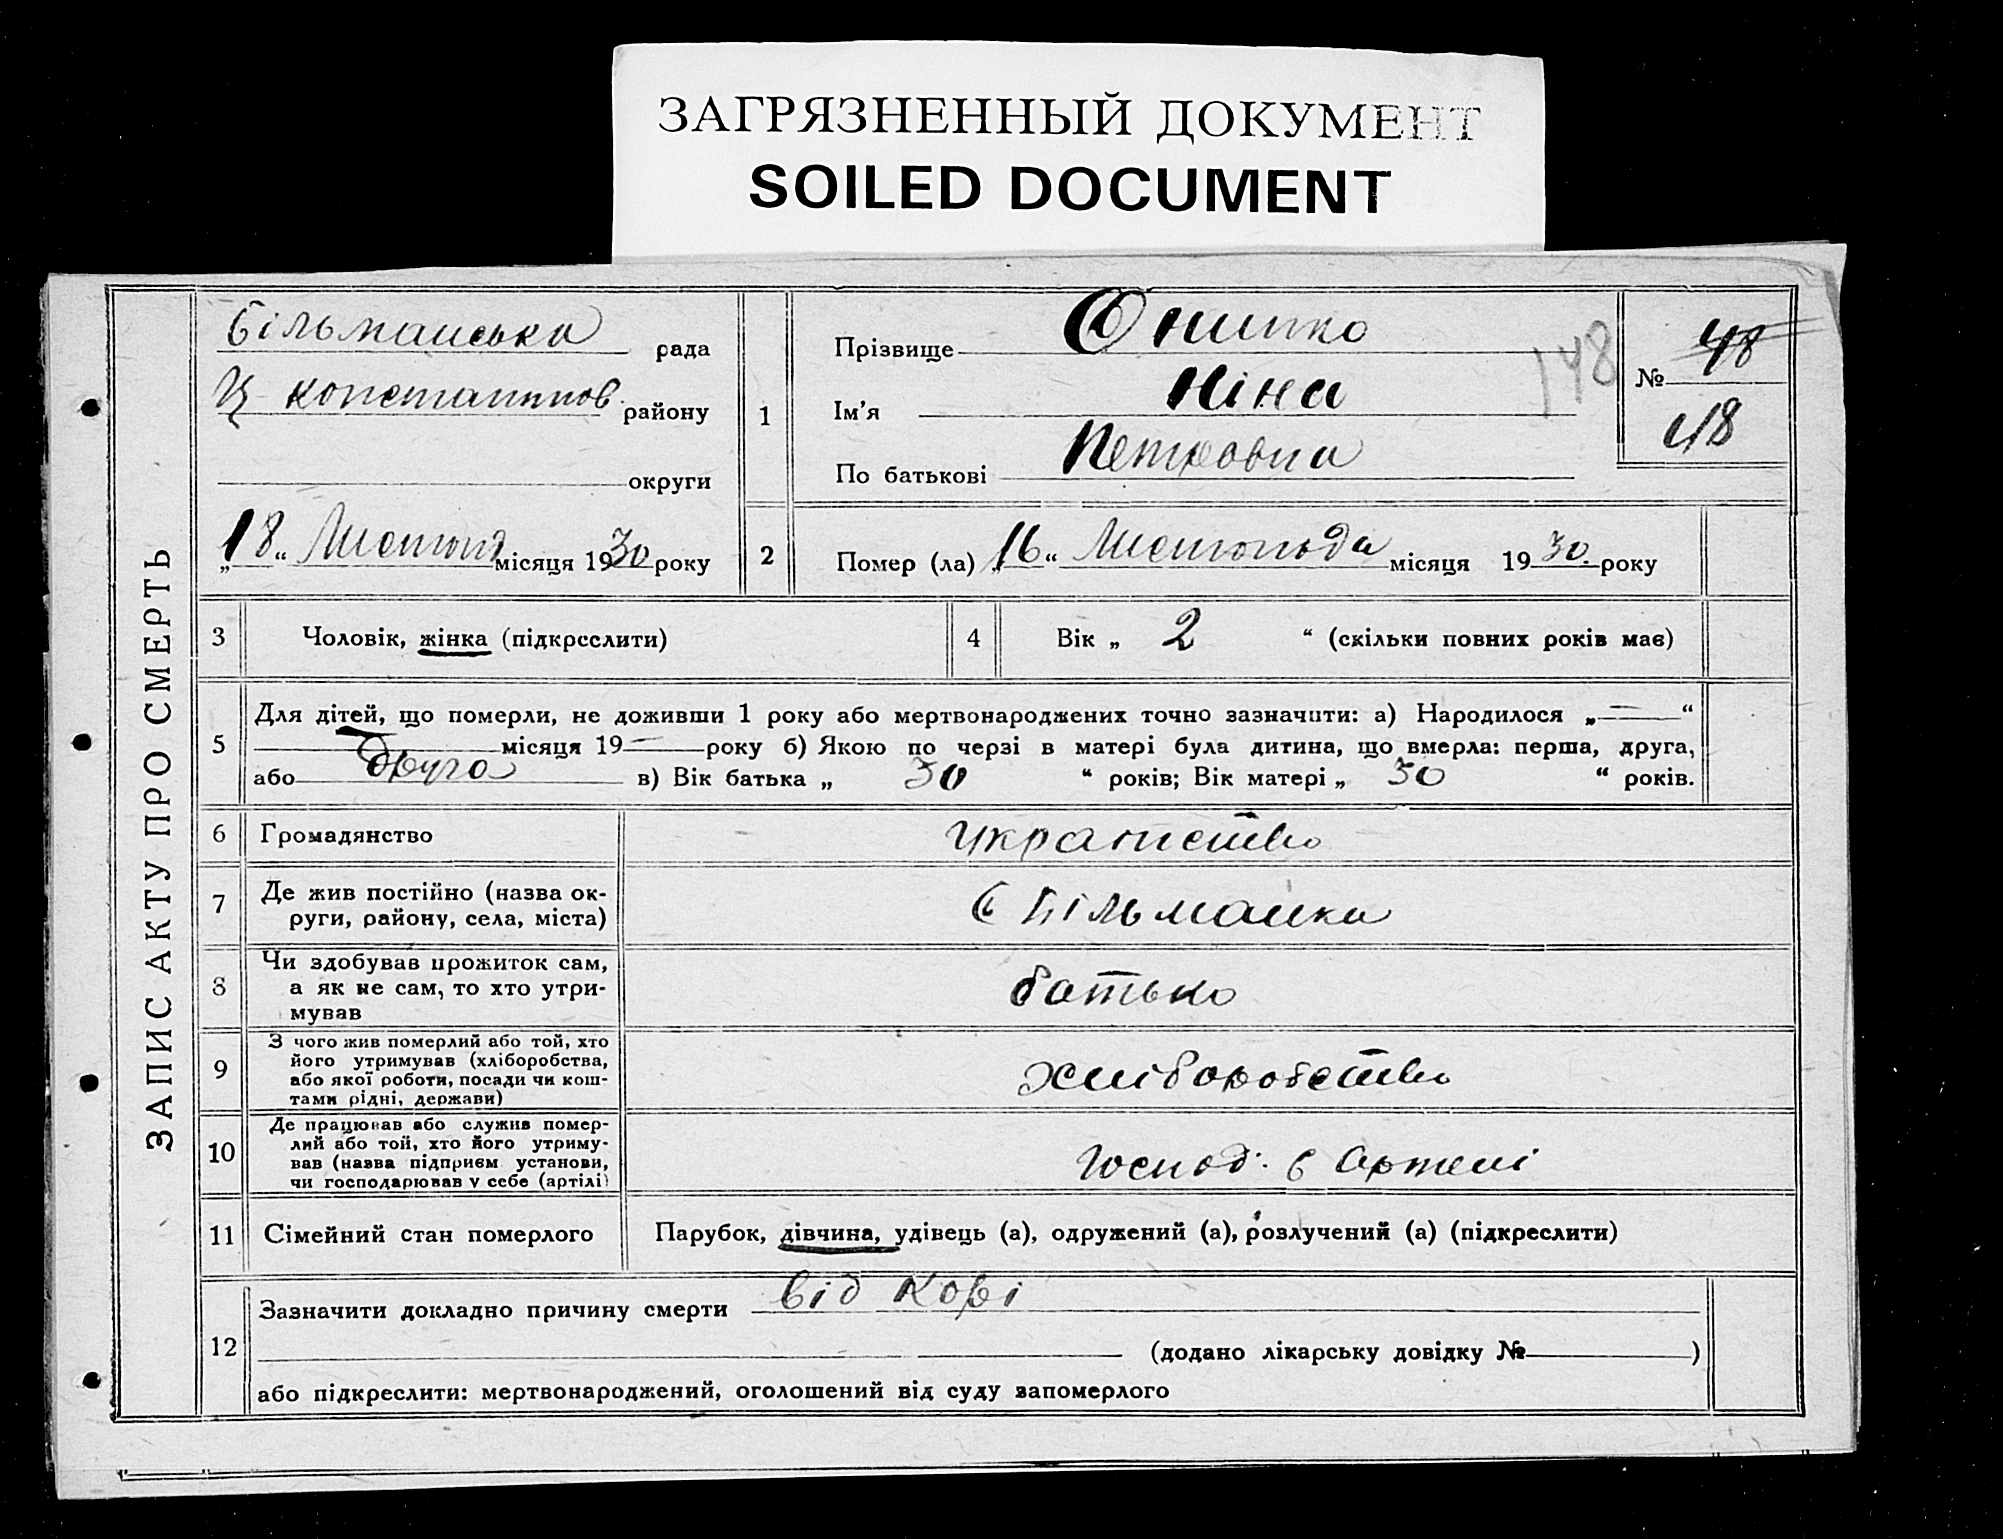 ЗАГРЯЗНЕННЫЙ ДОКУМЕНТ
SOILED DOCUMENT
ЗАПИС АКТУ ПРО СМЕРТЬ
Більманська рада
Ц Констаннов. району
округи
„18“ Листопад місяця 1930 року
1
Прізвище Онипко
Ім’я Ніна
По батькові Петровна
148
№ 48
48
2
Помер (ла) „16“ Листопода місяця 1930. року
3
Чоловік, жінка (підкреслити)
4
Вік „ 2 “ (скільки повних років має)
5
Для дітей, що померли, не доживши 1 року або мертвонароджених точно зазначити: а) Народилося „—“
— місяця 19— року б) Якою по черзі в матері була дитина, що вмерла: перша, друга,
або друга в) Вік батька „ 30 “ років; Вік матері „ 30 “ років.
6
Громадянство
7
Де жив постійно (назва ок-
руги, району, села, міста)
С Більманка
8
Чи здобував прожиток сам,
а як не сам, то хто утри-
мував
батько
9
З чого жив померлий або той, хто
його утримував (хліборобства,
або якої роботи, посади чи кош-
тами рідні, держави)
хліборобство
10
Де працював або служив помер-
лий або той, хто його утриму-
вав (назва підприєм установи,
чи господарював у себе (артілі)
Господ. в Артелі
11
Сімейний стан померлого
Парубок, дівчина, удівець (а), одружений (а), розлучений (а) (підкреслити)
12
Зазначити докладно причину смерти від Корі
(додано лікарську довідку №)
або підкреслити: мертвонароджений, оголошений від суду запомерлого